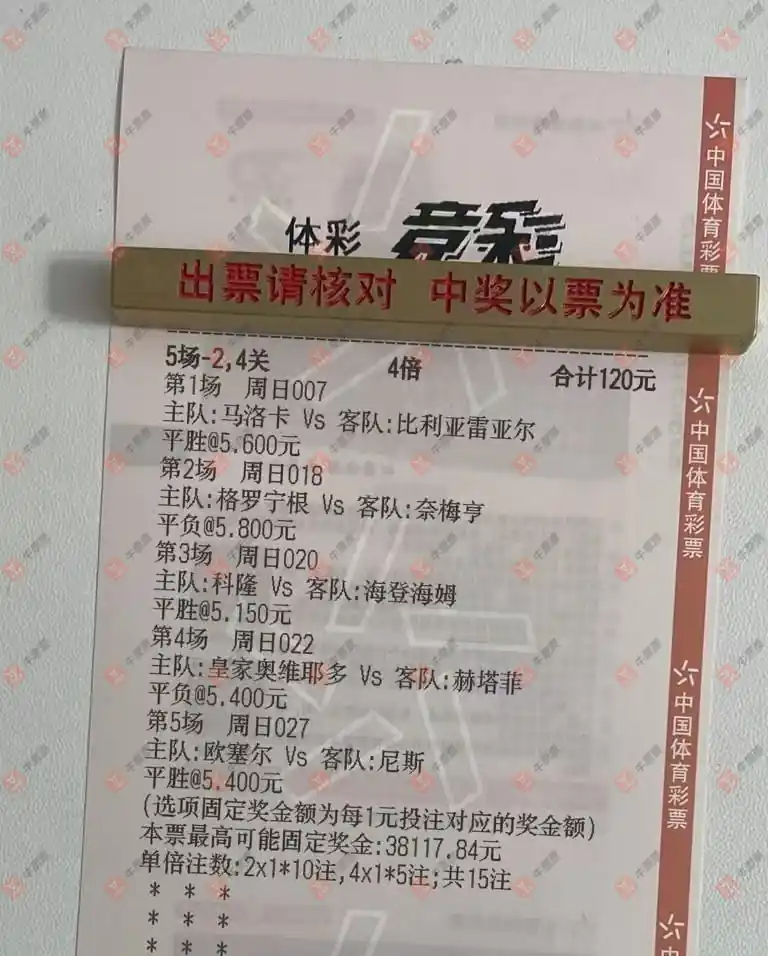 体彩 竞彩
出票请核对 中奖以票为准
5场-2,4关 4倍 合计120元
第1场 周日007
主队:马洛卡 Vs 客队:比利亚雷亚尔
平胜@5.600元
第2场 周日018
主队:格罗宁根 Vs 客队:奈梅亨
平负@5.800元
第3场 周日020
主队:科隆 Vs 客队:海登海姆
平胜@5.150元
第4场 周日022
主队:皇家奥维耶多 Vs 客队:赫塔菲
平负@5.400元
第5场 周日027
主队:欧塞尔 Vs 客队:尼斯
平胜@5.400元
(选项固定奖金额为每1元投注对应的奖金额)
本票最高可能固定奖金:38117.84元
单倍注数:2x1*10注,4x1*5注;共15注
* * *
* * *
* * *
中国体育彩票
中国体育彩票
中国体育彩票
中